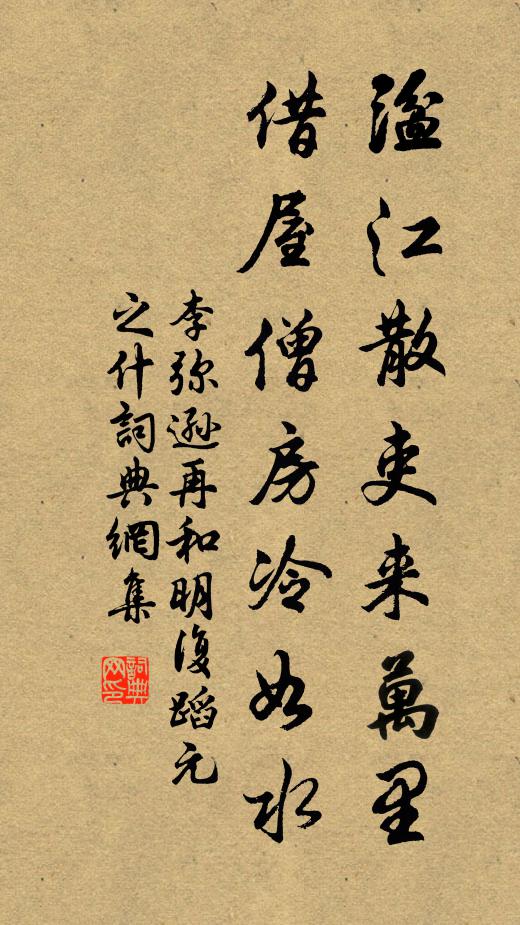 溢江散吏来萬里
借屋僧房冷如水
李弥遜再和明復蹈元
之什詞典網集
詞典網印